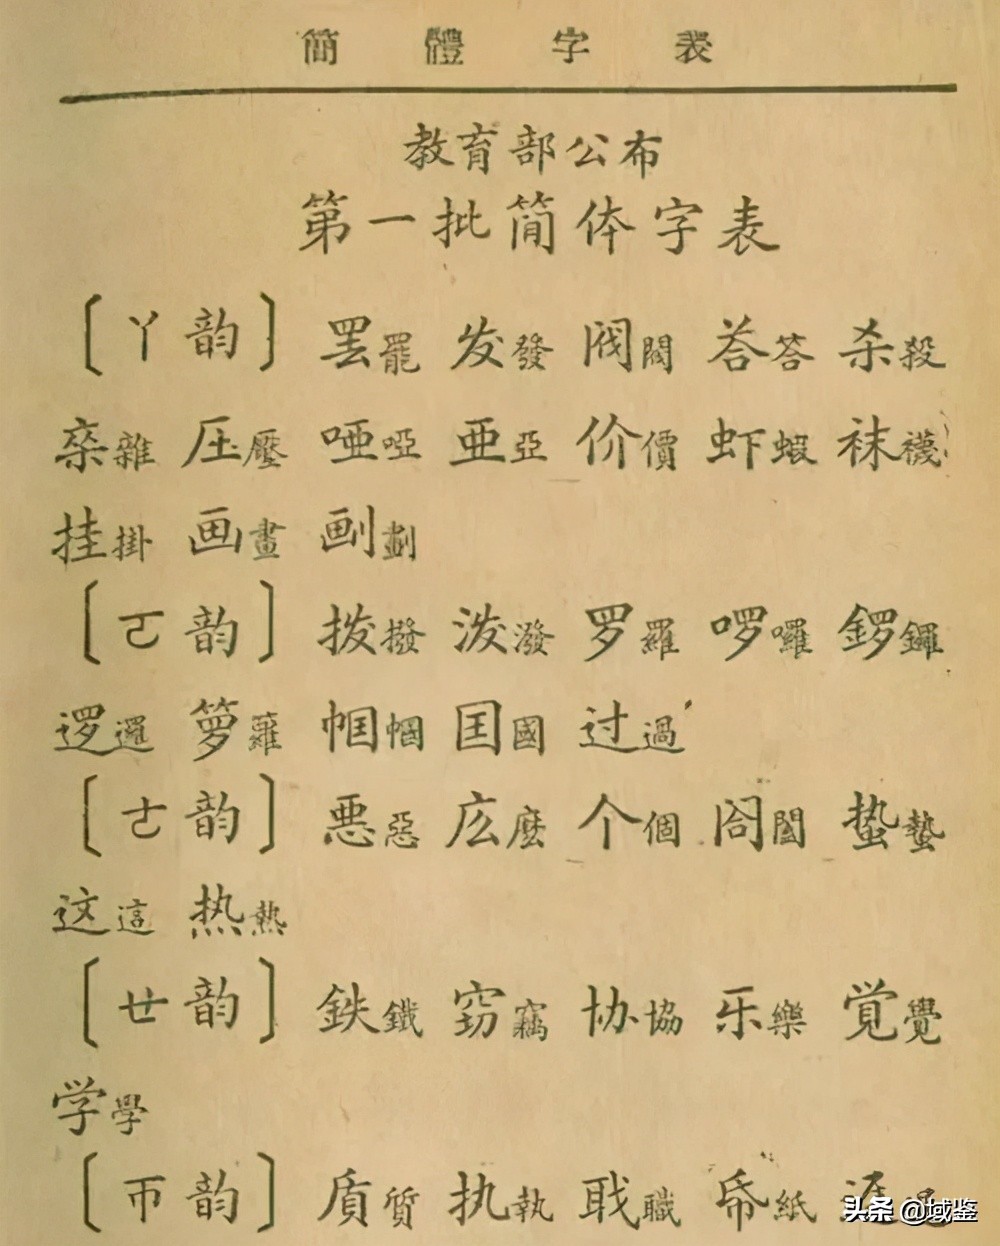 簡體字表
教育部公布
第一批简体字表
〔ㄚ韵〕 罢罷 发發 阀閥 荅答 杀殺
杂雜 压壓 哑啞 亚亞 价價 虾蝦 袜襪
挂掛 画畫 劃
〔ㄛ韵〕 拨撥 泼潑 罗羅 啰囉 鑼
逻邏 箩籮 帼幗 囯國 过過
〔ㄜ韵〕 悪惡 庅麼 个個 閤 蛰蟄
这這 热熱
〔ㄝ韵〕 鉄鐵 窃竊 协協 乐樂 覚覺
学學
〔ㄭ韵〕 质質 执執 职職 帋紙
头条 @域鉴